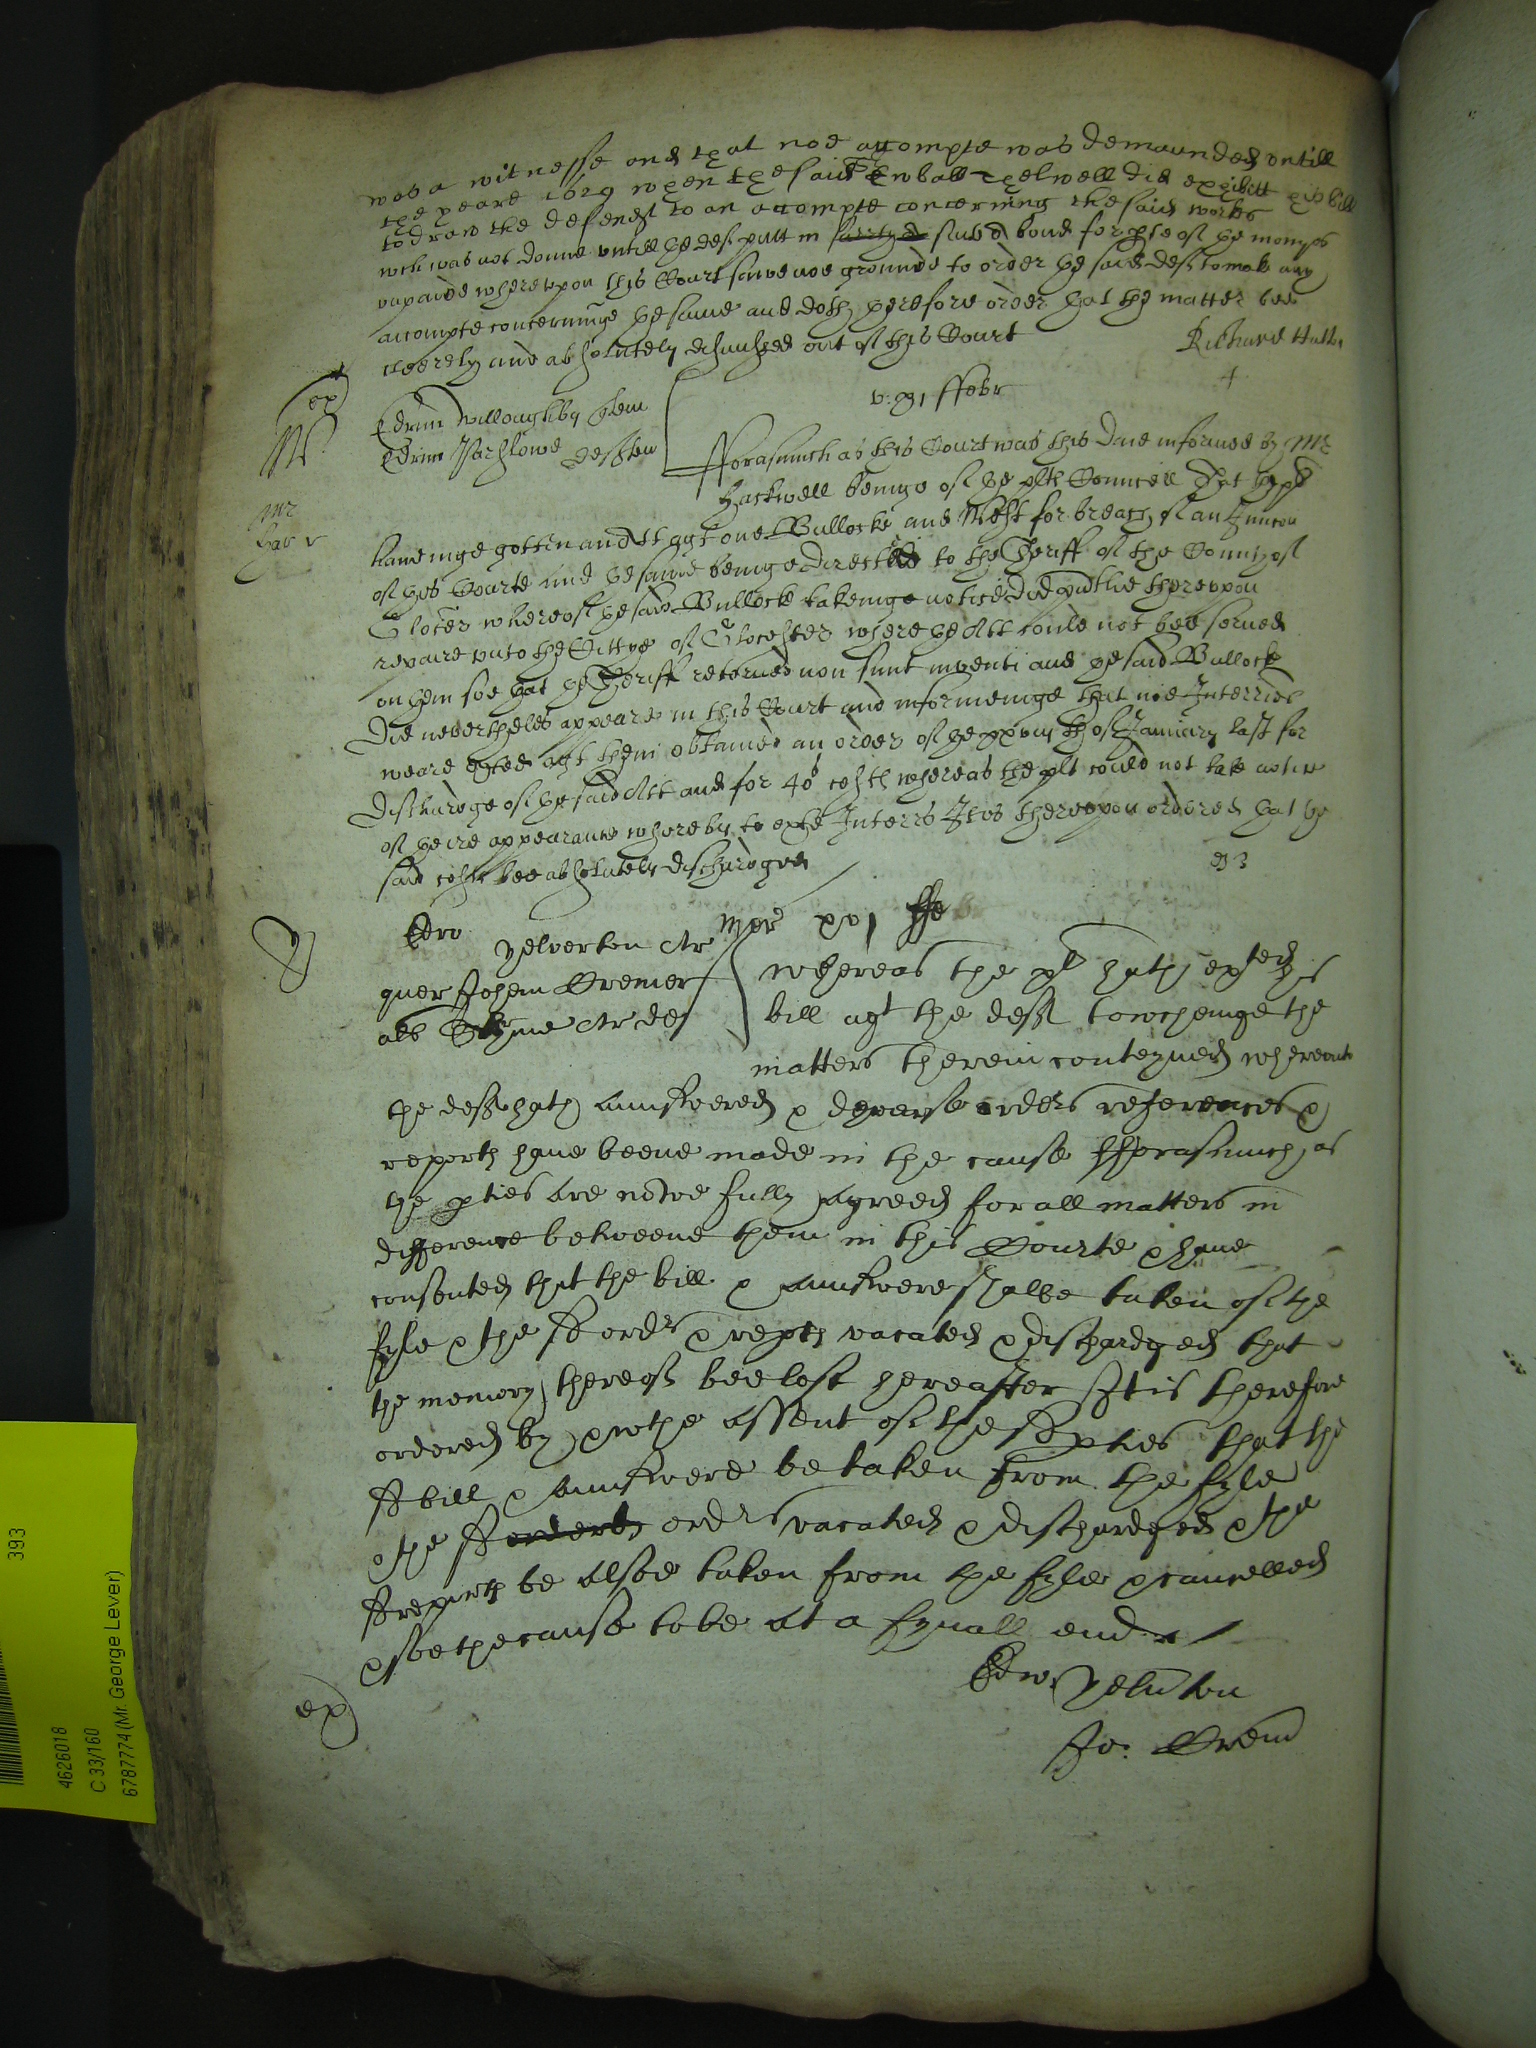 was a witnesse and that noe accompte was demaunded untill
the yeare 1629 when the said Ewball Thelwell did exhibitt his bill
to draw the defendt to an accompte concerning the said workes
wch was not donne untill he def putt in suite bond for of the monyes
unpaide whereupon this Court sawe noe grounde to order the said def to make any
accompte concerninge the same and doth therefore order that the matter bee
cleerely and absolutely dismissed out of this Court
Richard Hutton
v. ffebr
ex
Edrus Willoughby quer
Edrus deften
Mr
Forasmuch as this Court was this daie informed by Mr
Hackwell beinge of the plts Councell that the plt
haveinge gotten an Att agt one Bullocke and West for breach of an Iniuncon
of this Courte and the same beinge directed to the Sheriff of the County of
Glocer whereof the said Bullock takeinge notice did thereupon
repaire unto the Cittye of Glocester where the Att could not bee served
on them soe that the Sheriff retorned non sunt inventi and the said Bullock
did neverthelesse appeare in this Court and informeinge that noe Interries
weare agt them obtained an order of the xxviijth of January last for
dischardge of the said Att and for 40s costs whereas the plt could not take notice
of theire appearance whereby to exhe Interrs It is thereupon ordered that the
said costs bee absolutely dischardged
Edro Yelverton Ar
quer Johem Bremer
als Ar def
Mer xvj ffe
whereas the plt hath exhted his
bill agt the deft towcheinge the
matters therein conteyned whereunto
the deft hath aunswered & dyverse orders references &
reports have beene made in the cause Fforasmuch as
the pties are nowe fully agreed for all matters in
difference betweene them in this Courte & have
consented that the bill & aunswere shalbe taken of the
fyle & the sd ordrs & repts vacated & dischardged that
the memory thereof bee lost hereafter It is therefore
ordered by & wthe assent of the sd pties that the
sd bill & aunswere be taken from the fyle
& the sd orders ordrs vacated & dischardged & the
sd reports be alsoe taken from the fyle & cancelled
& soe the cause to be at a fynall end
Edw. Yelverton
Jo: Brem
ex
393
4626018
C 33/160
6787774 (Mr. George Lever)